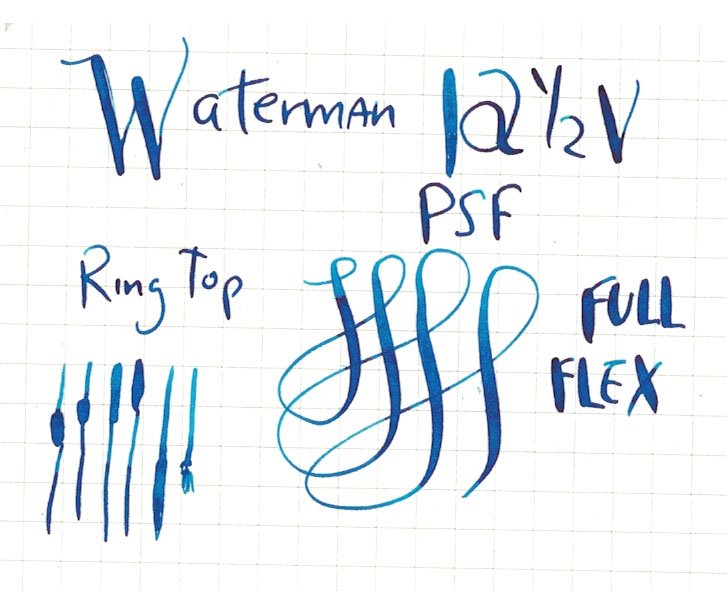 Waterman 12 ½ V
PSF
Ring Top
FULL
FLEX